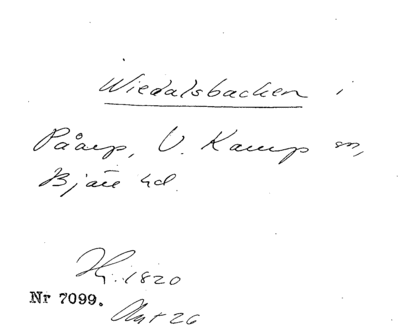 Wiedalsbacken i
Påarp, V. Karup sn,
Bjäre hd.
Hi. 1820
Nr 7099.
26